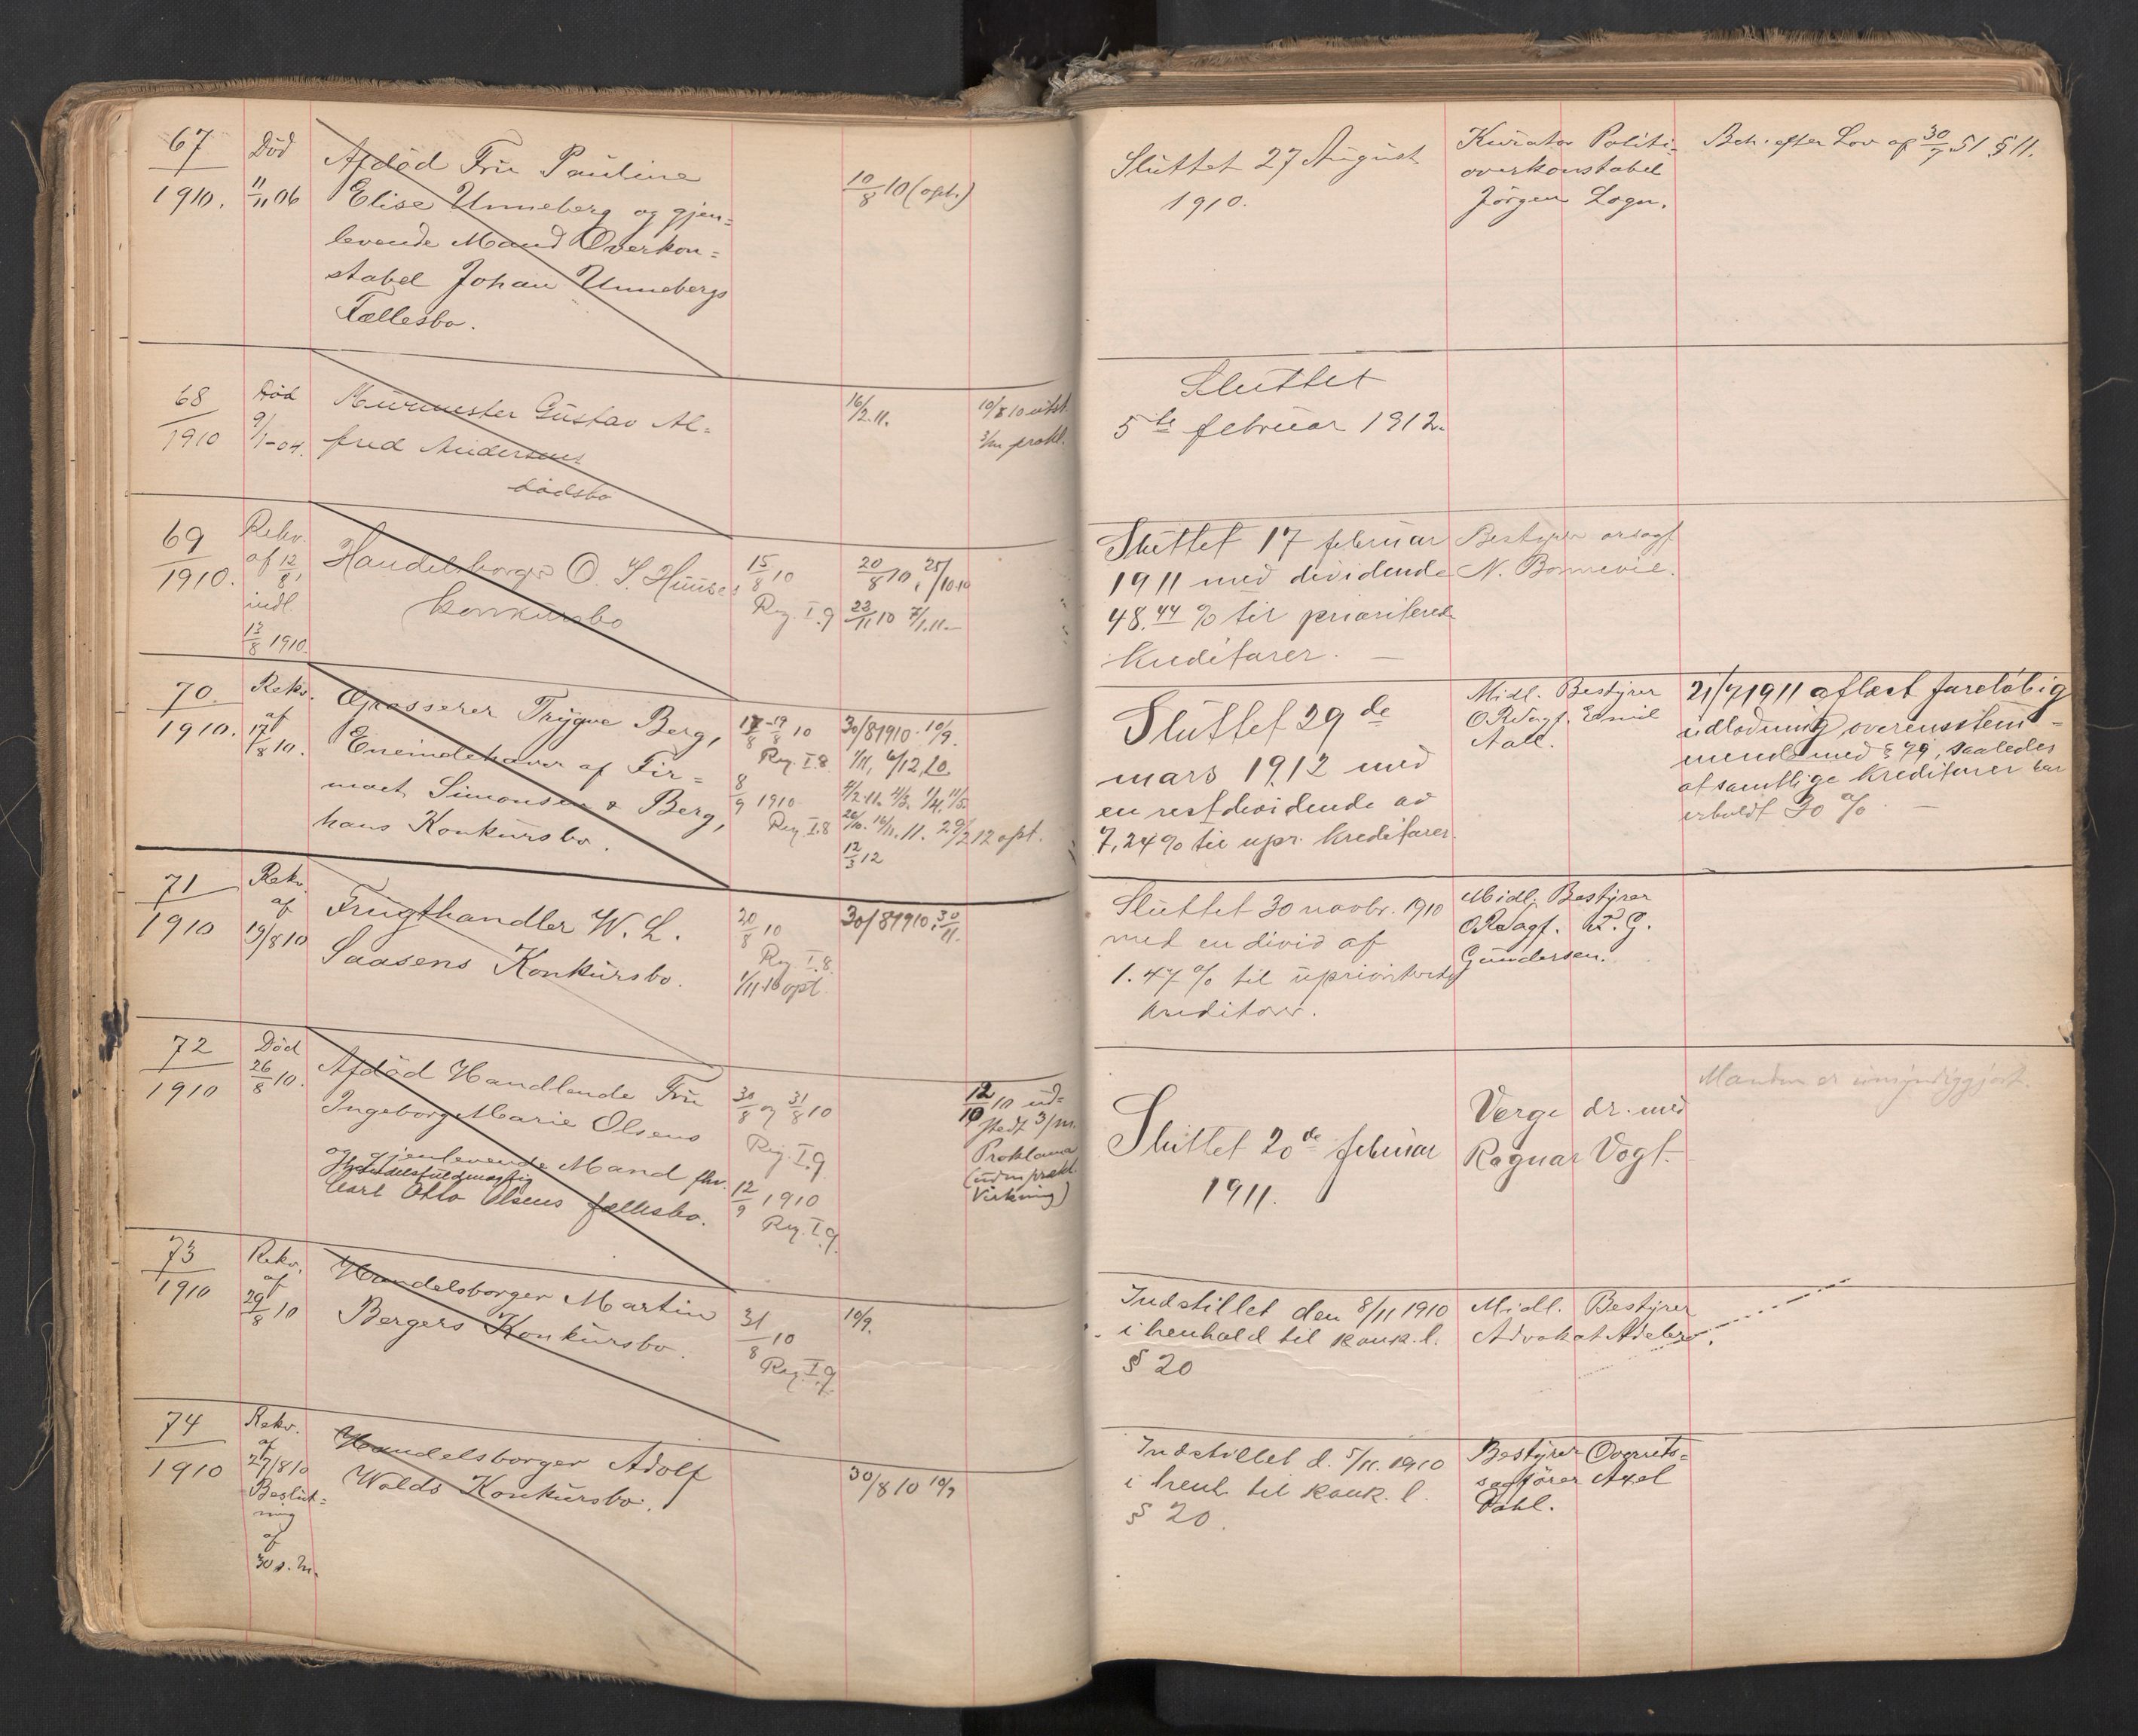 67
1910.
Död
11/11 06
Afdöd Fru Pauline
Elise Unneberg og gjen=
levende Mand Overkon=
stabel Johan Unnebergs
Fællesbo.
10/8 10 (opt.)
Sluttet 27 August
1910.
Kurator Politi-
overkonstabel
Jörgen Logn.
Beh. efter Lov af 30/7 51 § 11.
68
1910
Död
9/1-04.
Murmester Gustav Al=
fred Andersens
dödsbo
16/2.11.
10/8 10 utst.
3/m prokl.
Sluttet
5te februar 1912.
69
1910.
Rekv.
af 12/8,
indl
13/8 1910.
Handelsborger O. S. Huuses
konkursbo
15/8 10
Reg. I.9
20/8 10, 25/10.10
22/11 10 7/1.11.-
Sluttet 17 februar
1911 med dividende
48.44 % til prioriterede
kreditorer. -
Bestyrer orsagf
N. Bonnevie.
70.
1910.
Rekv.
af
17/8 10.
Grosserer Trygve Berg,
Eneindehaver af Fir=
maet Simonsen & Berg,
hans Konkursbo.
18/8-19/8 10
Reg. I.8.
8/9 1910
Reg. I.8
30/8 1910. 10/9.
1/11, 6/12, 10
4/2.11. 4/3. 1/4, 11/5
26/10. 16/11. 11. 29/2 12 opt.
12/3 12
Sluttet 29de
mars 1912 med
en restdividende av
7,24% til upr. kreditorer.
Midl. Bestyrer
ORsagf. Emil
Aall.
21/7 1911 aflæst foreløbig
udlodning overensstem-
mende med § 79, saaledes
at samtlige kreditorer har
erholdt 30 %. -
71
1910
Rekv.
af
19/8 10
Frugthandler W. L.
Saasens Konkursbo.
20/8 10
Reg I.8.
1/11.10 opt.
30/8 1910. 30/11.
Sluttet 30 novbr. 1910
med en divid af
1.47 % til uprioriterte
kreditorer.
Midl. Bestyrer
ORsagf. P. G.
Gundersen.
72
1910
Död
26/8 10.
Afdöd Handlende Fru
Ingeborg Marie Olsens
og gjenlevende Mand fhv.
Handelsfuldmægtig
Carl Otto Olsens fællesbo.
30/8 og 31/8 10
Reg. I.9
12/9 1910
Reg. I.9.
12/10 10 ud=
stedt 3/m.
Proklama
(uden prækl.
Virkning)
Sluttet 20de februar
1911.
Verge dr. med
Ragnar Vogt.
Manden er umyndiggjort.
73
1910
Rekv.
af
29/8 10
Handelsborger Martin
Bergers Konkursbo.
31/8 10
Reg. I.9
10/9.
Indstillet den 8/11 1910
i henhold til konk. l.
§ 20
Midl. Bestyrer
Advokat
74
1910
Rekv.
af
27/8 10
Beslut=
ning
af
30 s. M.
Handelsborger Adolf
Wolds Konkursbo.
30/8 10 10/9
Indstillet d. 5/11. 1910
i henh. til konk. l.
§ 20.
Bestyrer Overrets=
sagförer Axel
Dahl.